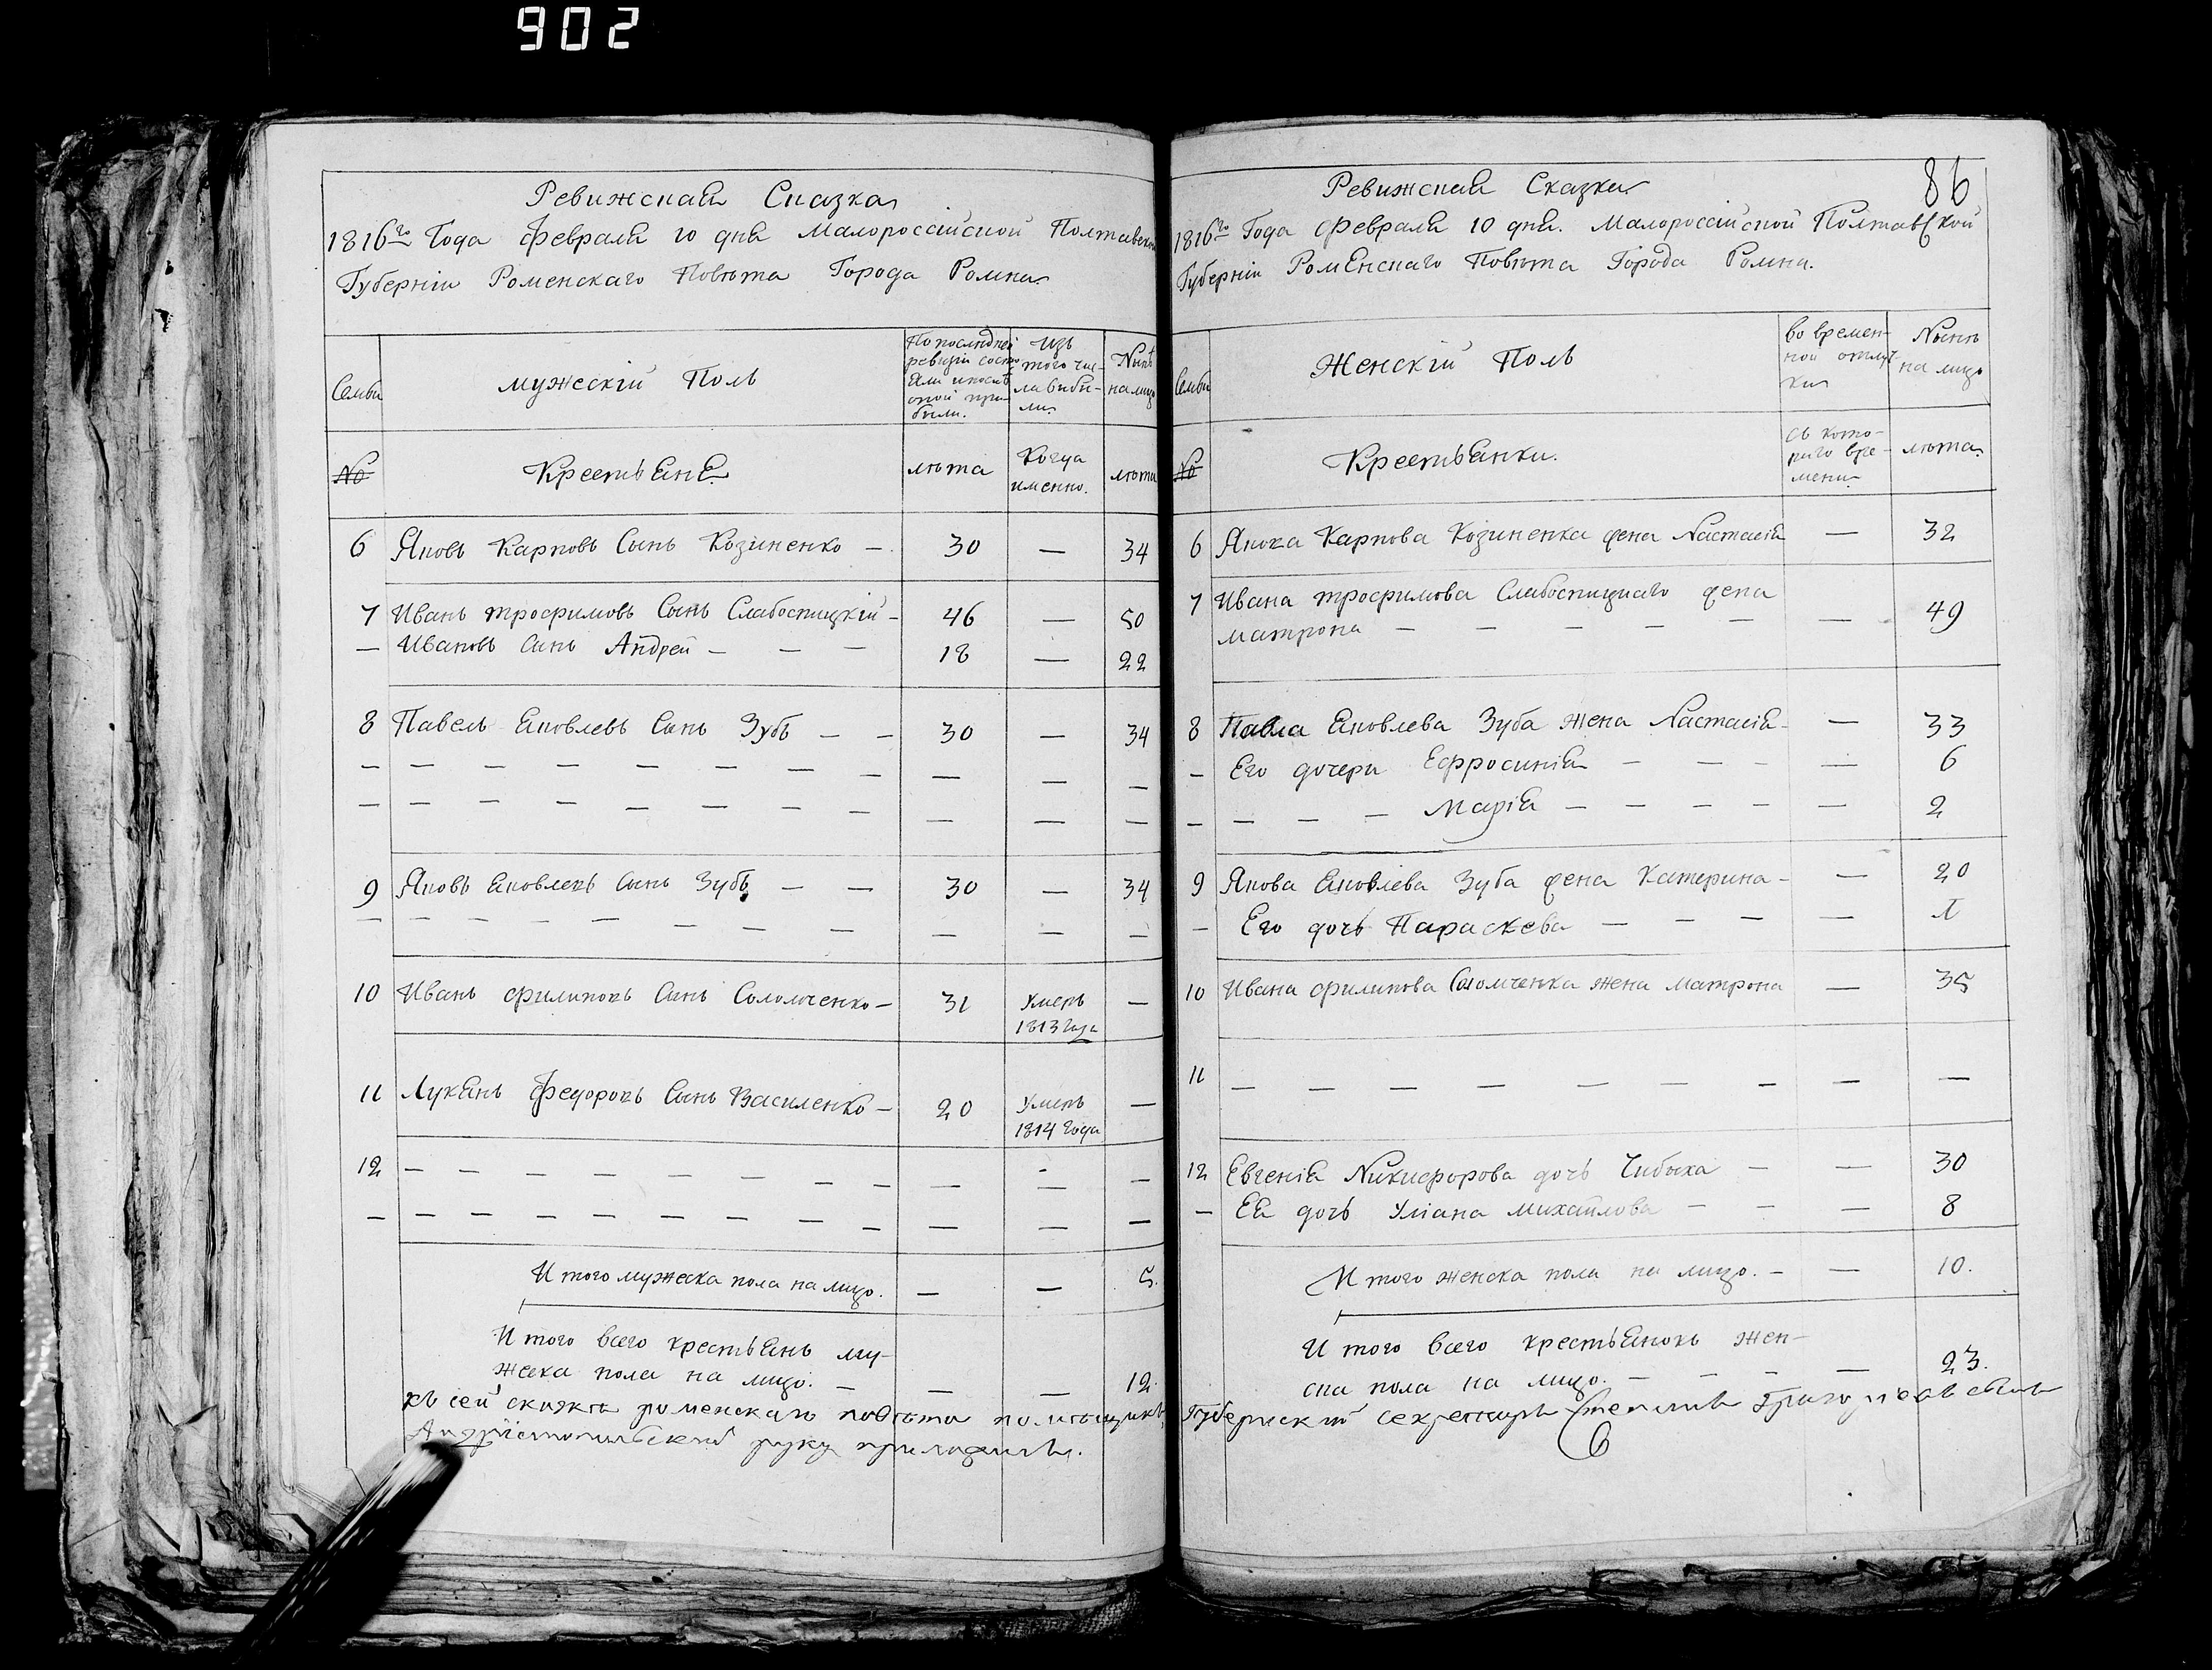 902
Ревижская Сказка
1816го Года февраля 10 дня Малороссійской Полтавской
Губерніи Роменскаго Повѣта Города Ромна
Семьи
мужескій Полъ
По последней ревизіи состояли и после оной прибыли.
Изъ того числа выбыли
Нынѣ на лицо
№
Крестьяне
лѣта
Когда именно.
лѣта
6 Яковъ Карповъ Сынъ Козиненко — 30 — 34
7 Иванъ трофимовъ Сынъ Слабоспицкій — 46 — 50
— Ивановъ Сынъ Андрей — — — 18 — 22
8 Павелъ Яковлевъ Сынъ Зубъ — — 30 — 34
9 Яковъ Яковлевъ Сынъ Зубъ — — 30 — 34
10 Иванъ филиповъ Сынъ Соломченко — 31 Умеръ 1813 Года —
11 Лукьянъ Федоровъ Сынъ Василенко — 20 Умеръ 1814 Года —
12 — — — — — — — —
Итого мужеска пола на лицо. — — 5.
Итого всего крестьянъ му-
жеска пола на лицо. — — — 12.
Къ сей сказке роменскаго повѣта помѣщикъ
руку приложилъ.
86
Ревижская Сказка
1816го Года февраля 10 дня. Малороссійской Полтавской
Губерніи Роменскаго Повѣта Города Ромна.
Семьи
Женскій Полъ
во времен-
ной отлуч-
ки
Нынѣ
на лицо
№
Крестьянки.
съ кото-
раго вре-
мени
лѣта
6 Якова Карпова Козиненка жена Настасія — 32
7 Ивана трофимова Слабоспицкаго жена
матрона — — — — — — 49
8 Павла Яковлева Зуба жена Настасія — — 33
— Его дочери Ефросинія — — — — 6
— — — — Марія — — — — — 2
9 Якова Яковлева Зуба жена Катерина — — 20
— Его дочь Параскева — — — — 1
10 Ивана филипова Соломченка жена Матрона — 35
11 — — — — — — — — —
12 Евгенія Никифорова дочь Чибыха — — 30
— Ея дочь Уліана михайлова — — — 8
Итого женска пола на лицо. — — 10.
Итого всего крестьянокъ жен-
ска пола на лицо. — — — — 23.
Губернский секретарь